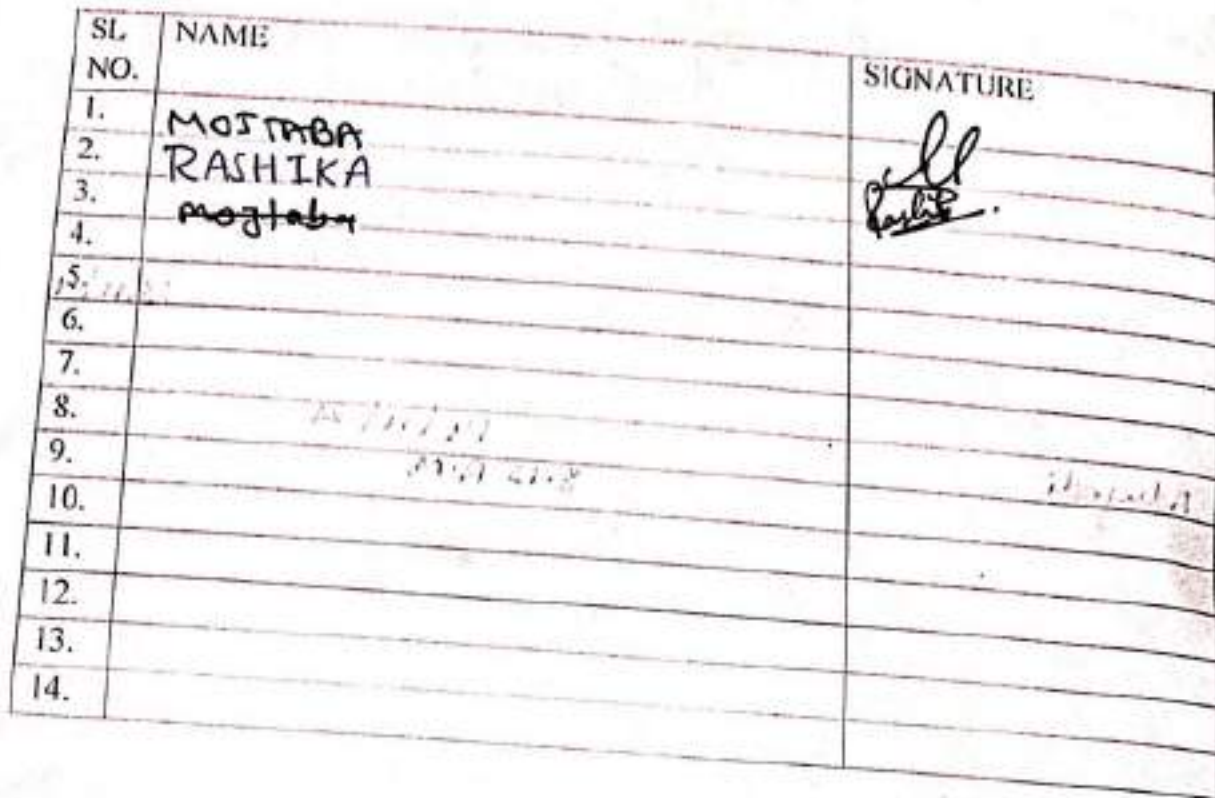 SL NO. NAME SIGNATURE
1. MOJTABA
2. RASHIKA Rashika
3. mojtaba
4.
5.
6.
7.
8.
9.
10.
11.
12.
13.
14.